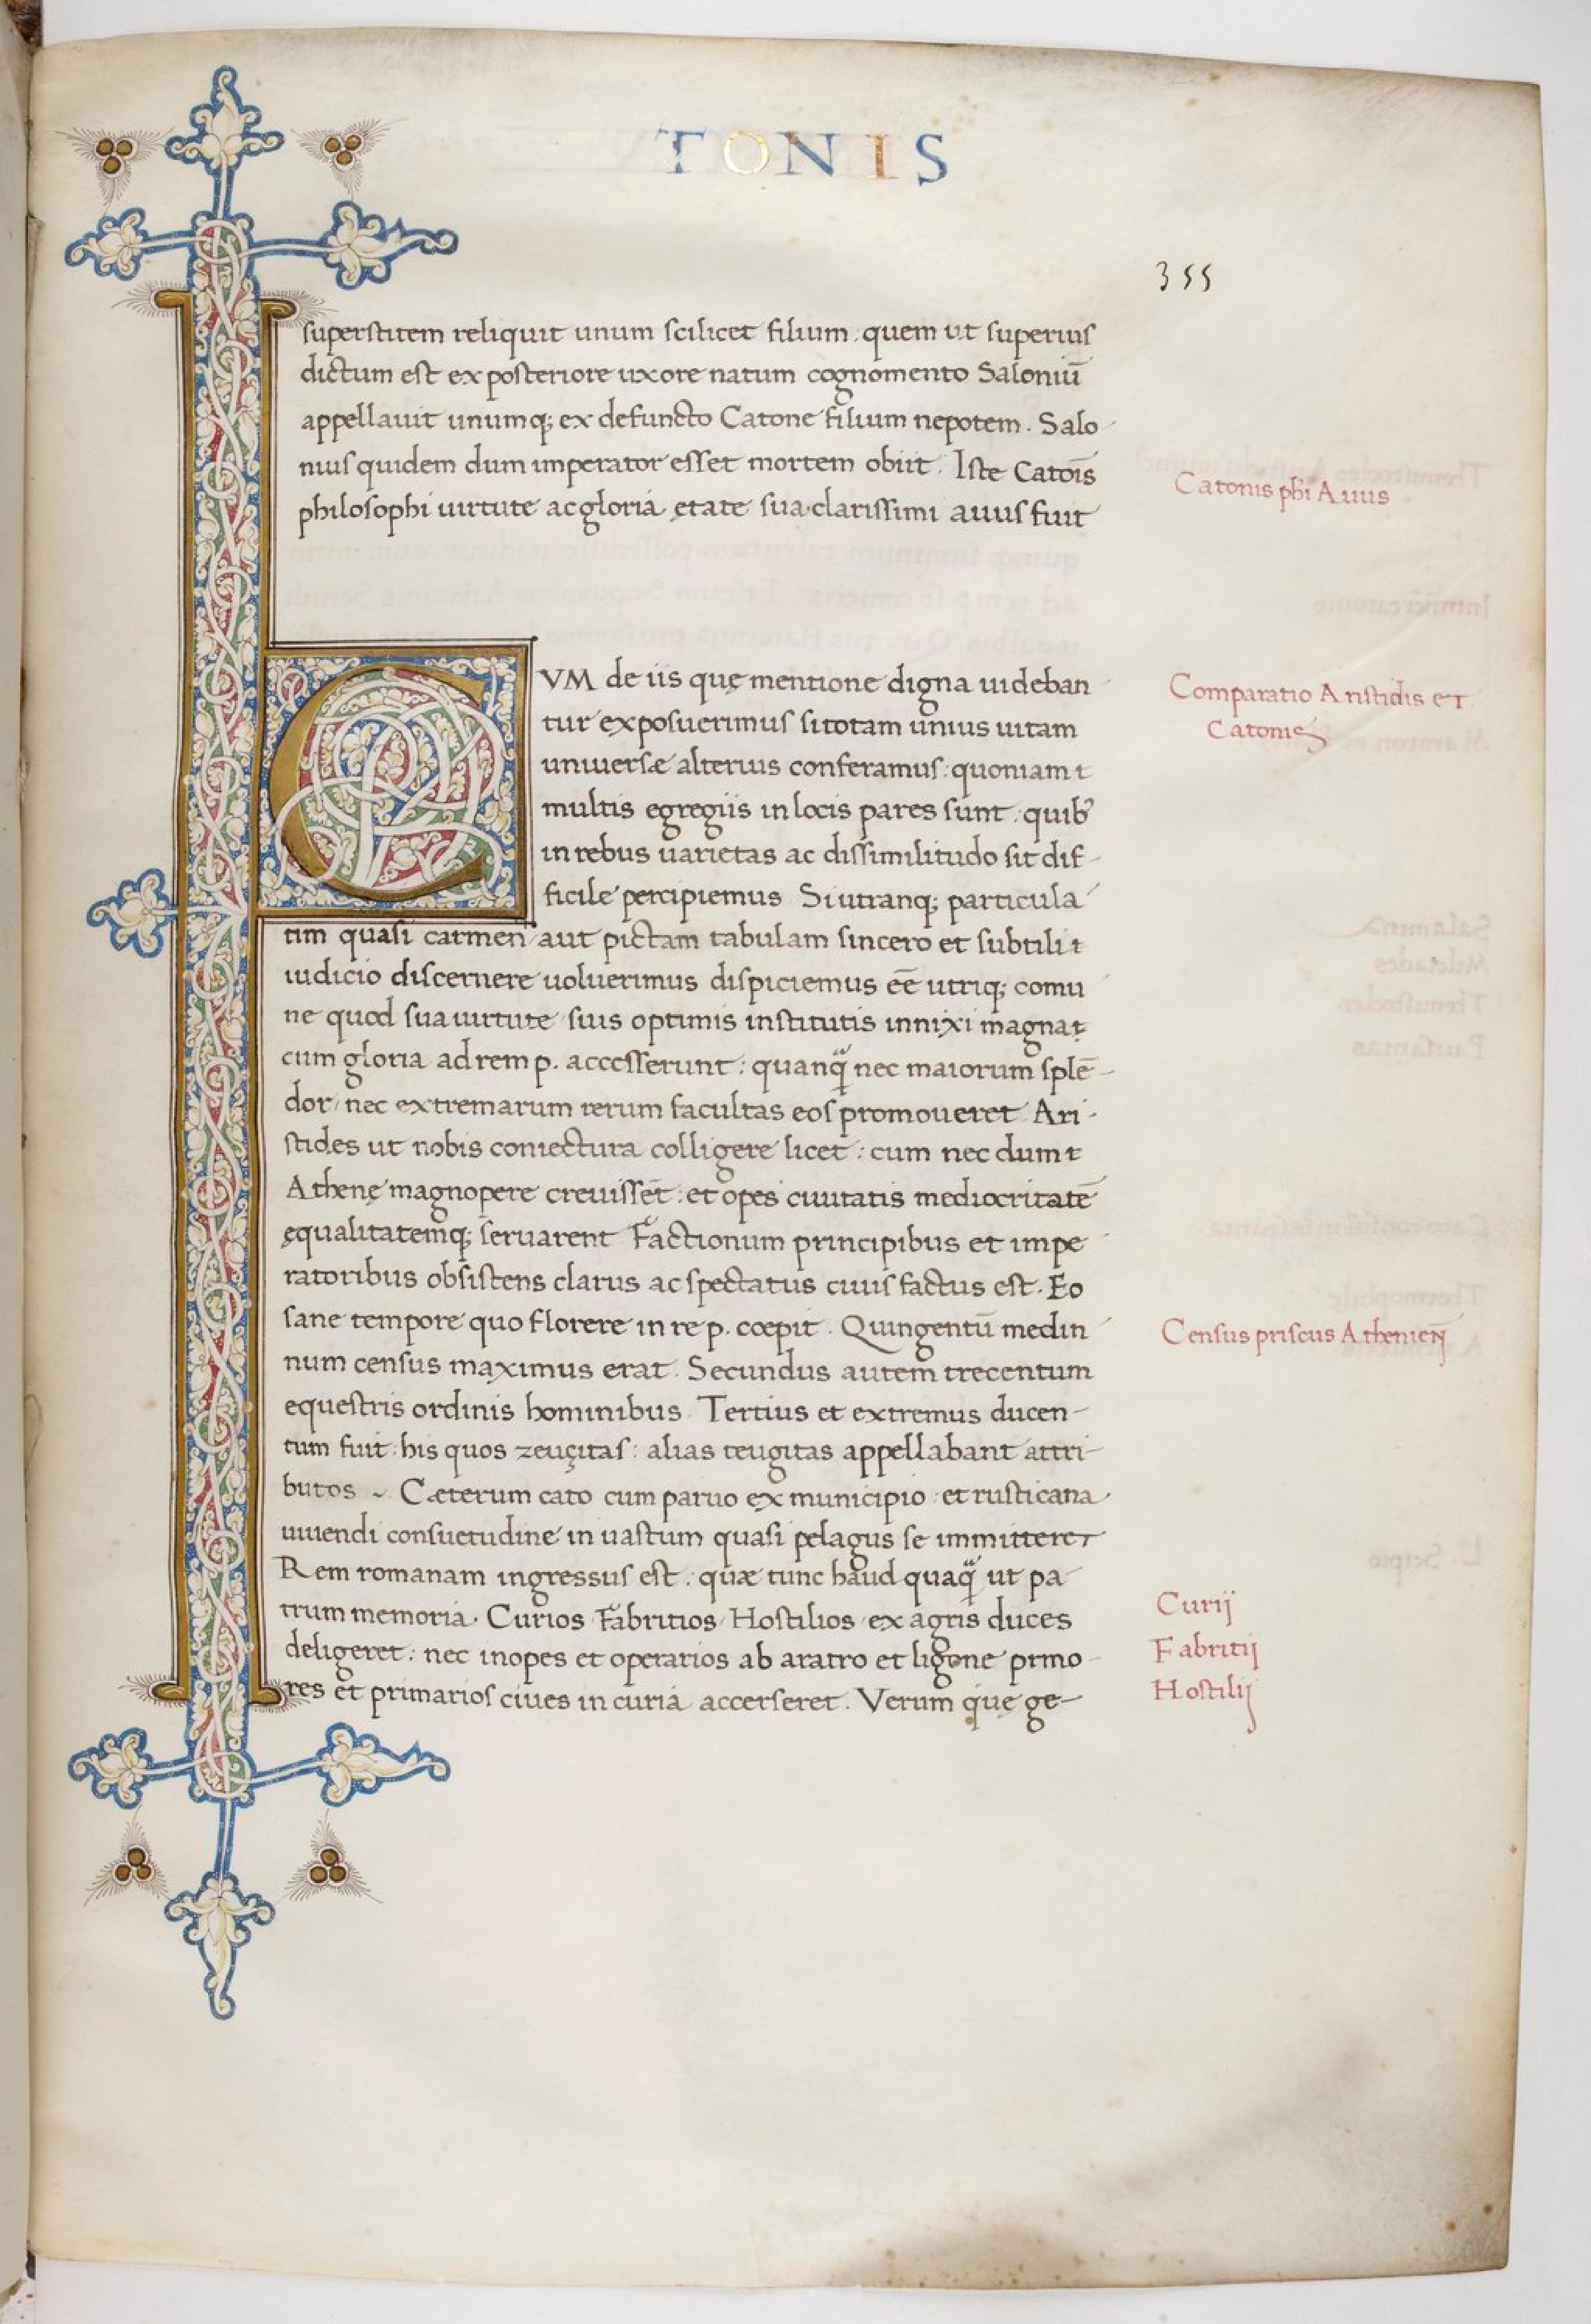 TONIS
355
superstitem reliquit unum scilicet filium: quem ut superius
dictum est ex posteriore uxore natum cognomento Saloniū
appellauit unumq; ex defuncto Catone filium nepotem. Salo
nius quidem dum imperator esset mortem obiit. Iste Catōis
philosophi uirtute ac gloria ętate sua clarissimi auus fuit
Catonis phi Auus
CVM de iis quę mentione digna uideban
tur exposuerimus si totam unius uitam
uniuersæ alterius conferamus: quoniam
multis egregiis in locis pares sunt: quib
in rebus uarietas ac dissimilitudo sit dif-
ficile percipiemus Si utranq; particula
tim quasi carmen aut pictam tabulam sincero et subtili
iudicio discernere uoluerimus dispiciemus eē utriq; comu
ne quod sua uirtute suis optimis institutis innixi magna
cum gloria ad rem p. accesserunt: quanq̃ nec maiorum splē-
dor nec extremarum rerum facultas eos promoueret Ari-
stides ut nobis coniectura colligere licet: cum nec dum
Athenę magnopere creuissēt: et opes ciuitatis mediocritatē
ęqualitatemq; seruarent Factionum principibus et impe
ratoribus obsistens clarus ac spectatus ciuis factus est. Eo
sane tempore quo florere in re p. cœpit. Quingentū medin
num census maximus erat. Secundus autem trecentum
equestris ordinis hominibus. Tertius et extremus ducen-
tum fuit: his quos zeuçitas: alias teugitas appellabant attri-
butos ~ Cæterum cato cum paruo ex municipio: et rusticana
uiuendi consuetudine in uastum quasi pelagus se immitteret
Rem romanam ingressus est: quæ tunc haud quaq̃ ut pa
trum memoria. Curios Fabritios Hostilios ex agris duces
deligeret: nec inopes et operarios ab aratro et ligone prmo-
res et primarios ciues in curia accerseret. Verum quę ge-
Comparatio Aristidis et
Catonis
Census priscus Athenień
Curij
Fabritij
Hostilij